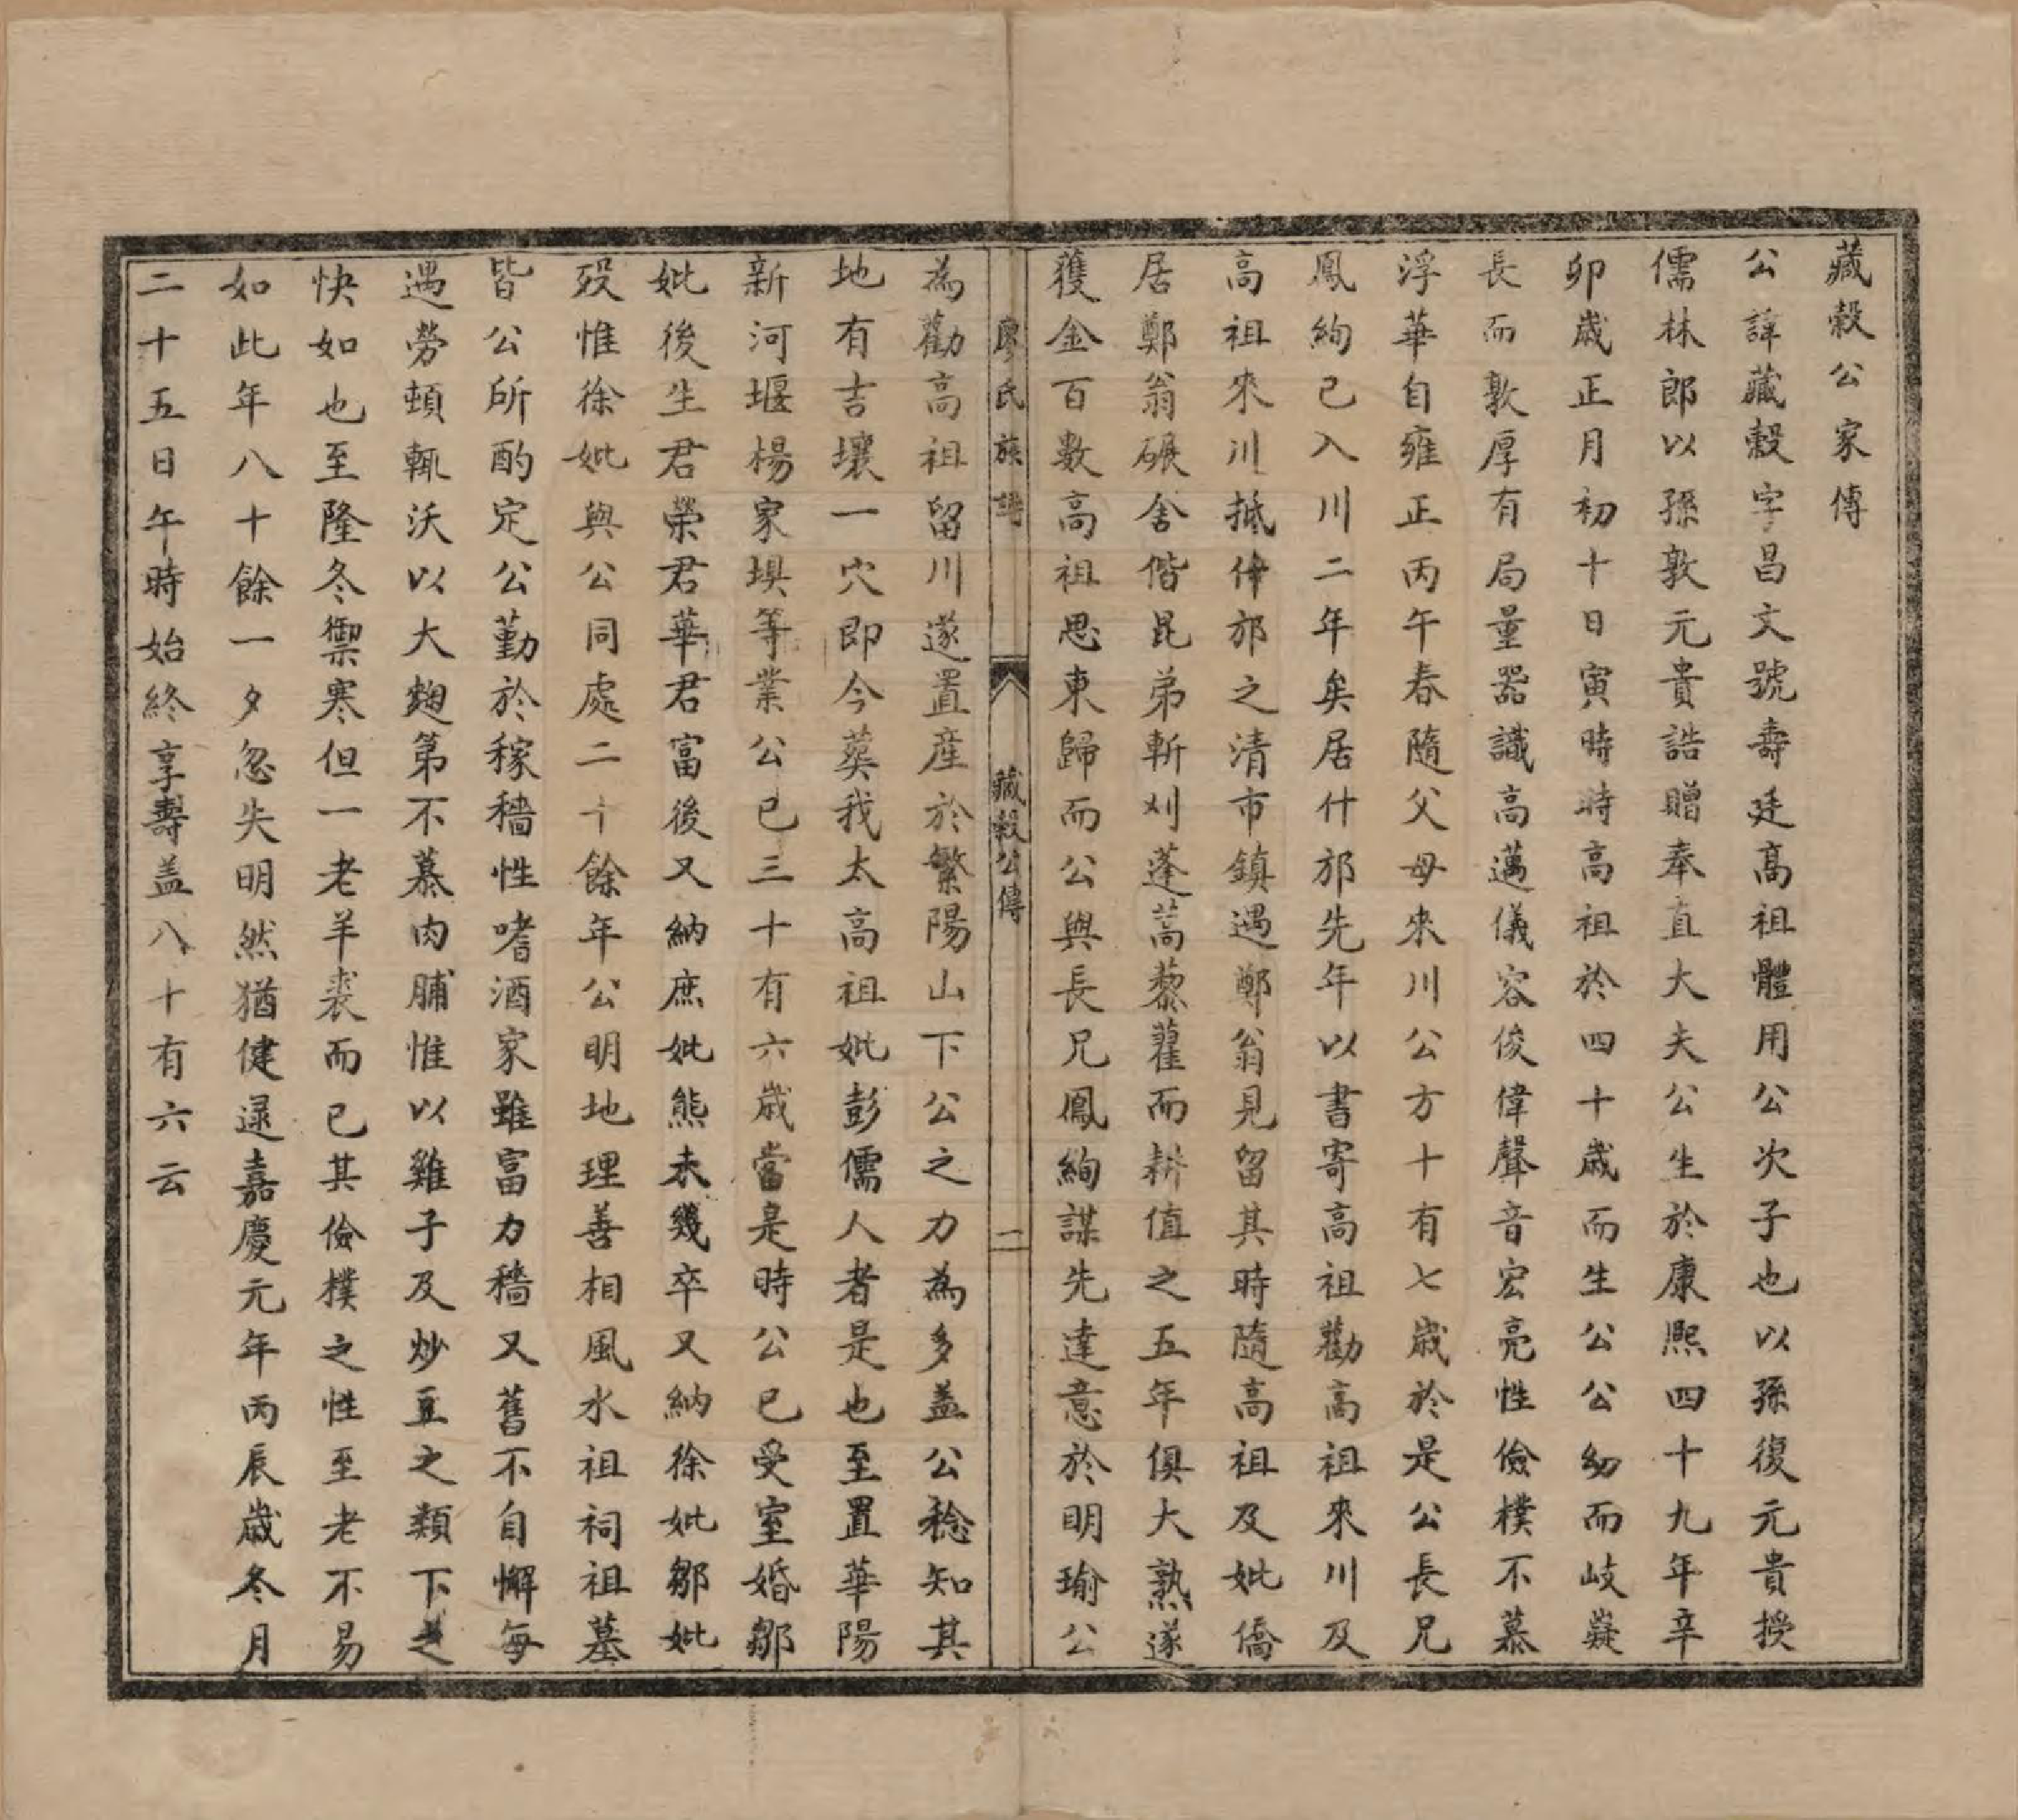 藏穀公家傳
公諱藏穀字昌文號壽廷高祖體用公次子也以孫復元貴授
儒林郎以孫敦元貴誥贈奉直大夫公生於康熙四十九年辛
卯歲正月初十日寅時時高祖於四十歲而生公公幼而岐嶷
長而敦厚有局量器識高邁儀容俊偉聲音宏亮性儉樸不慕
浮華自雍正丙午春隨父母來川公方十有七歲於是公長兄
鳳絢已入川二年矣居什邡先年以書寄高祖勸高祖來川及
高祖來川抵什邡之清市鎮遇鄭翁見留其時隨高祖及妣僑
居鄭翁碾舍偕昆弟斬刈蓬蒿藜藿而耕值之五年俱大熟遂
獲金百數高祖思東歸而公與長兄鳳絢謀先達意於明瑜公
廖氏族譜
藏穀公傳
二
為勸高祖留川遂置産於繁陽山下公之力為多盖公稔知其
地有吉壤一穴即今葬我太高祖妣彭儒人者是也至置華陽
新河堰楊家埧等業公已三十有六歲當是時公已受室婚鄒
妣後生君榮君華君富後又納庶妣熊未幾卒又納徐妣鄒妣
歿惟徐妣與公同處二十餘年公明地理善相風水祖祠祖墓
皆公所酌定公勤於稼穡性嗜酒家雖富力穡又舊不自懈每
遇勞頓輒沃以大麯第不慕肉脯惟以雞子及炒豆之類下之
快如也至隆冬禦寒但一老羊裘而已其儉樸之性至老不易
如此年八十餘一夕忽失明然猶健逯嘉慶元年丙辰歲冬月
二十五日午時始終享壽盖八十有六云